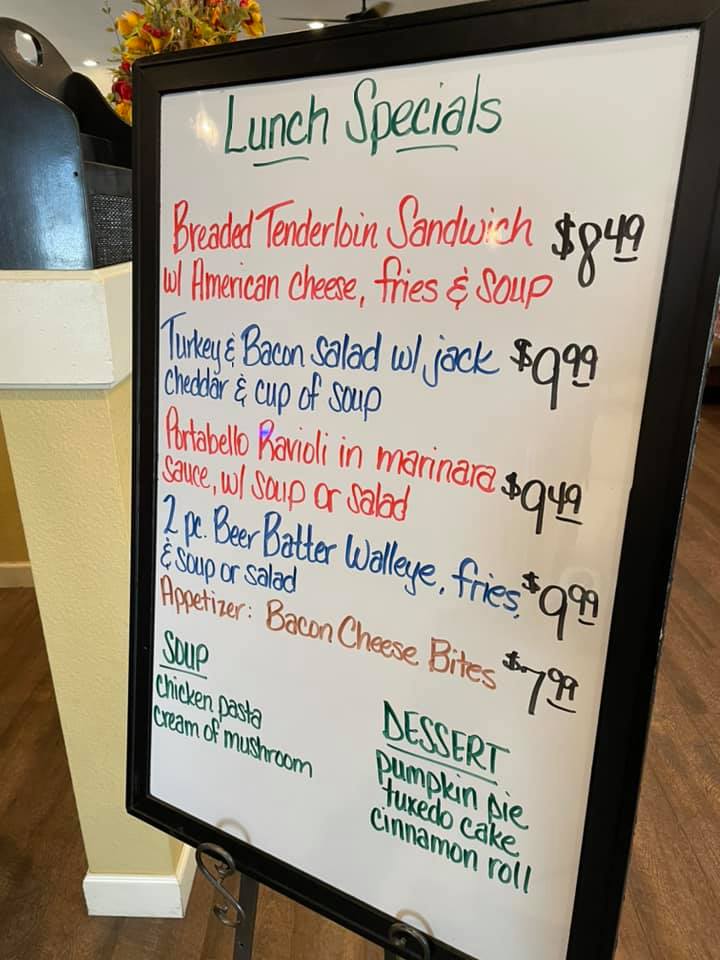 Lunch Specials
Breaded Tenderloin Sandwich $8.49
w/ American cheese, fries & soup
Turkey & Bacon salad w/ jack $9.99
cheddar & cup of soup
Portabello Ravioli in marinara $9.49
sauce, w/ soup or salad
2 pc. Beer Batter Walleye, fries, $9.99
& soup or salad
Appetizer: Bacon Cheese Bites $7.99
SOUP
chicken pasta
cream of mushroom
DESSERT
pumpkin pie
tuxedo cake
cinnamon roll